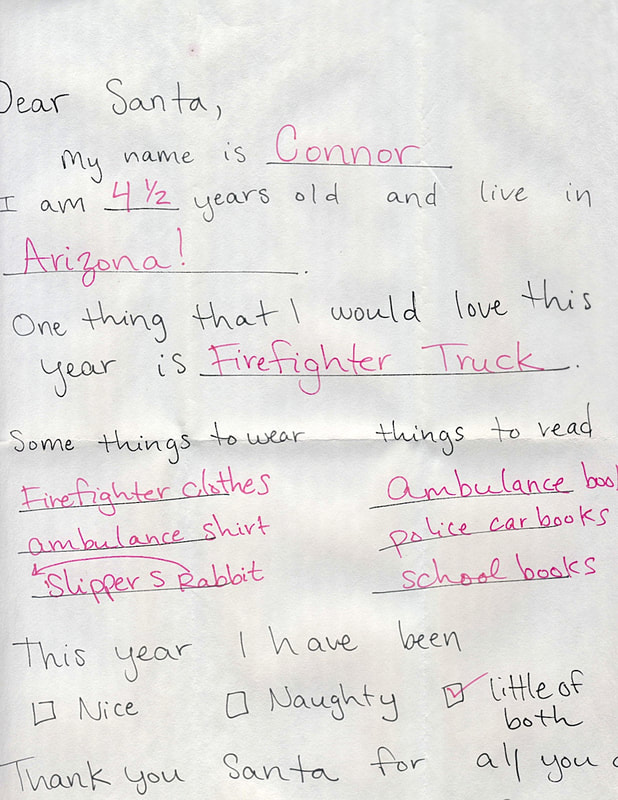 Dear Santa,
My name is Connor
I am 4 ½ years old and live in
Arizona! .
One thing that I would love this
year is Firefighter Truck.
Some things to wear
Firefighter clothes
ambulance shirt
Slippers Rabbit
things to read
ambulance boo
police car books
school books
This year I have been
Nice Naughty little of
both
Thank you Santa for all you